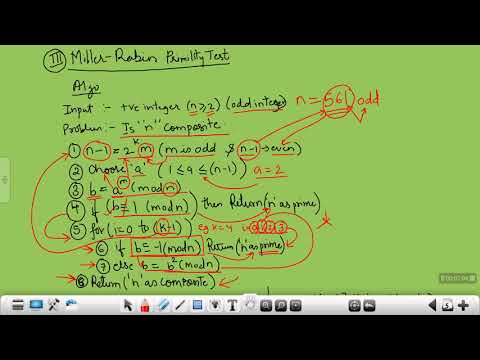 III Miller-Rabin Primility Test
Algo
Input :- +ve integer (n≥2) (odd integer) n = 561 odd
Problem :- Is "n" composite
① n-1 = 2^k m (m is odd & n-1 → even)
② Choose 'a' (1 ≤ a ≤ (n-1)) a = 2
③ b = a^m (mod n)
④ if (b ≡ 1 (mod n)) then Return ('n' as prime)
⑤ for (i=0 to (k-1)) eg k=4 i 0 1 2 3
⑥ if b ≡ -1 (mod n) Return ('n' as prime)
⑦ else b = b² (mod n)
⑧ Return ('n' as composite)